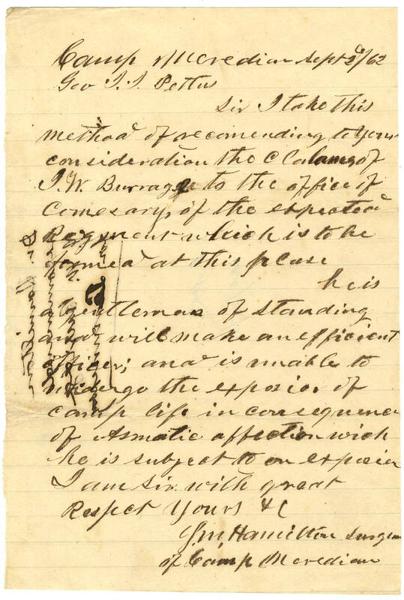 Camp Meredian Sept 2d/62
Gov J. J. Pettus
Sir I take this
method of recomending to your
consideration the Claims of
J. W. Burrage to the office of
Comesary, of the expected
Regiment which is to be
formed at this place
he is
a gentleman of standing
and will make an efficient
officer; and is unable to
undergo the exposier of
camp life in consequence
of Asmatic affection wich
he is subject to on exposier
I am Sir with great
Respect Yours &C
J M Hamilton Surgeon
of Camp Meredian